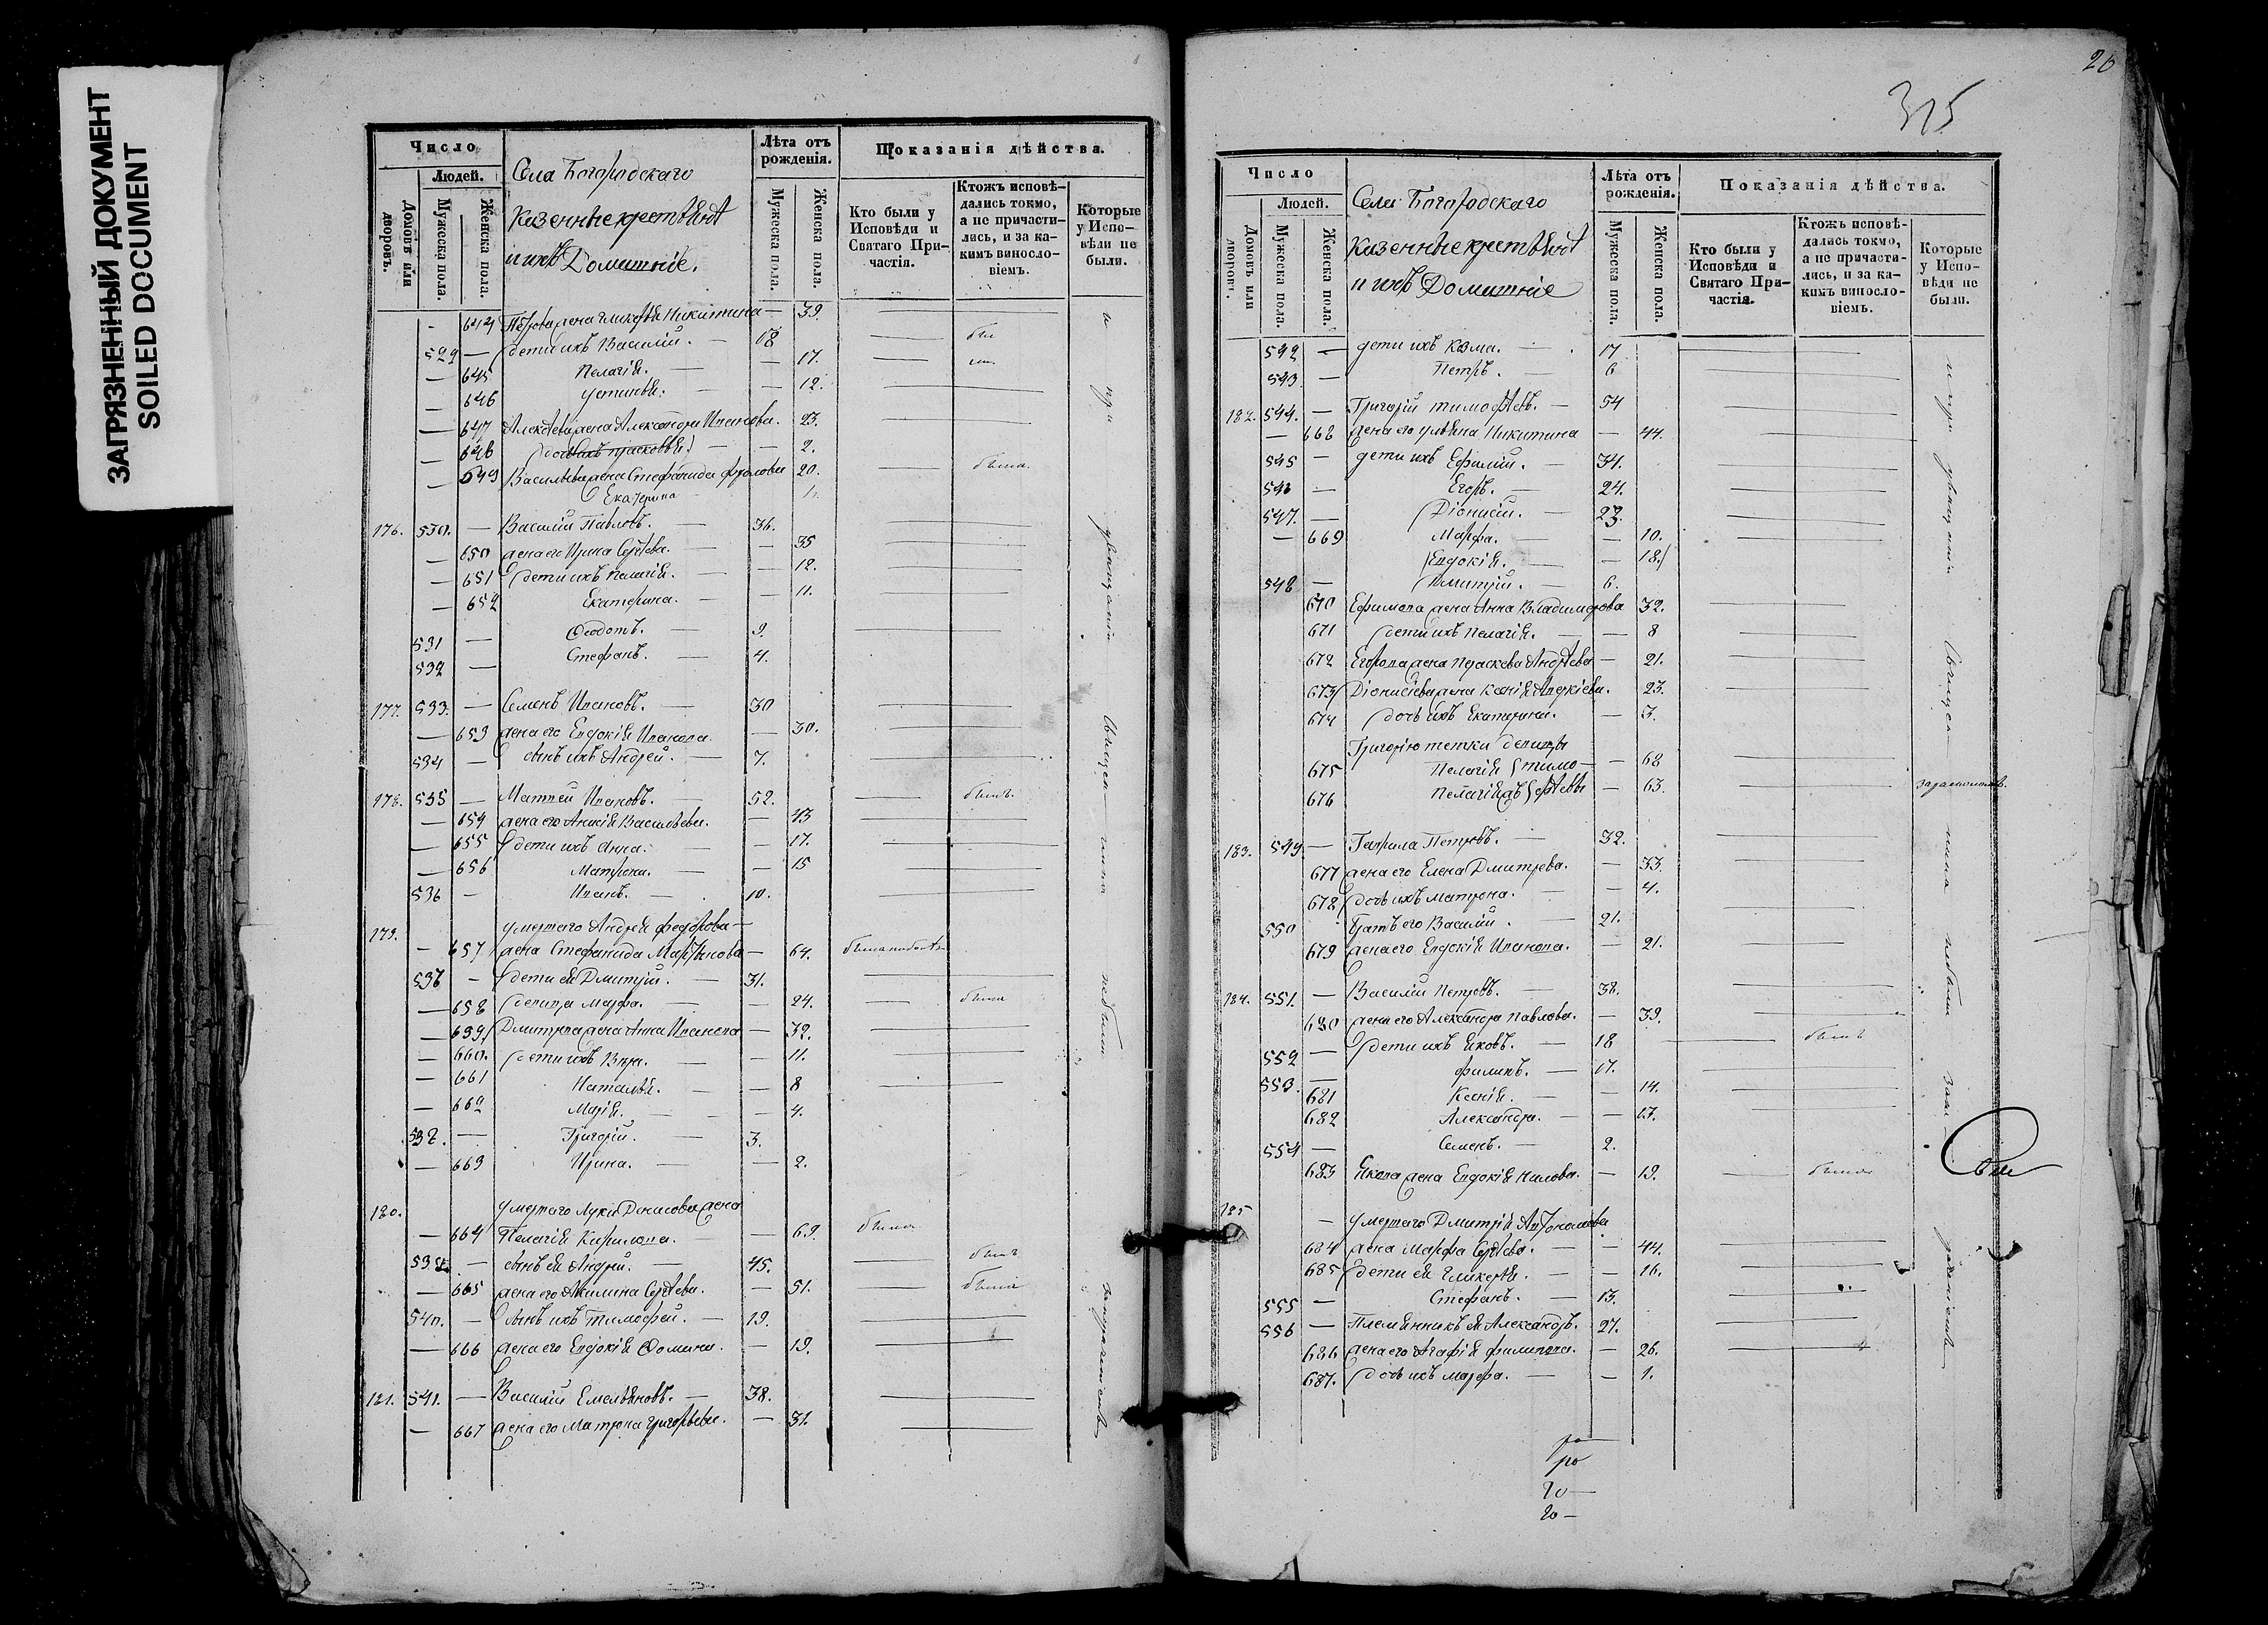 ЗАГРЯЗНЕННЫЙ ДОКУМЕНТ
SOILED DOCUMENT
Число
Людей.
Домовъ или дворовъ.
Мужеска пола.
Женска пола.
Села Богородскаго
Казенные крестьяне
и ихъ Домашніе.
Лѣта отъ рожденія.
Мужеска пола.
Женска пола.
Показанія дѣйства.
Кто были у Исповѣди и Святаго Причастія.
Ктожъ исповѣдались токмо, а не причастились, и за какимъ винословіемъ.
Которые у Исповѣди не были.
644 Петрова жена Гликерія Никитина — 39.
529 — дети ихъ Василий. — 18
— 645 Пелагія. — 17.
— 646 Устинья. — 12.
— 647 Алексеева жена Александра Иванова. 23.
— 648 дочь ихъ Прасковья. — 2.
— 649 Васильева жена Стефанида Фролова 20. была
Екатерина
176. 530. — Василий Павловъ. — 36.
— 650 жена его Ирина Сергѣева. — 35
— 651 дети ихъ Пелагія. — 12.
— 652 Екатерина. — 11.
531 — Ѳеодотъ. — 9.
532 — Стефанъ. — 4.
177. 533. — Семенъ Ивановъ. — 30
— 653 жена его Евдокія Иванова. — 30.
534 — сынъ ихъ Андрей. — 7.
178. 535 — Матвей Ивановъ. — 52. былъ
— 654 жена его Анисія Васильева. — 43
— 655 дети ихъ Анна. — 17.
— 656 Матрона. — 15
536 — Иванъ. — 10.
179. умершаго Андрея Федорова —
— 657 жена Стефанида Мартинова — 64.
536 — дети ея Дмитрий. — 31.
— 658 девица Марфа. — 24. была
— 659 Дмитрева жена Анна Иванова — 32.
— 660. дети ихъ Вера. — 11.
— 661 Наталья. — 8
— 662 Марія. — 4.
538. — Григорій. — 3.
— 663 Ирина. — 2.
180. умершаго Луки Денисова жена
— 664 Пелагія Кирилова. — 69. была
539. — сынъ ея Андрей. — 45. былъ
— 665 жена его Акилина Сергѣева. — 51. была
540. — сынъ ихъ Тимофей. — 19.
— 666 жена его Евдокія Ѳомина. — 19.
181. 541. — Василий Емельяновъ. — 38.
— 667 жена его Матрона Григорьева. — 31.
20
315
Число
Людей.
Домовъ или дворовъ.
Мужеска пола.
Женска пола.
Села Богородскаго
Казенные крестьяне
и ихъ Домашніе
Лѣта отъ рожденія.
Мужеска пола.
Женска пола.
Показанія дѣйства.
Кто были у Исповѣди и Святаго Причастія.
Ктожъ исповѣдались токмо, а не причастились, и за какимъ винословіемъ.
Которые у Исповѣди не были.
542 — дети ихъ Козма. — 17
543. — Петръ. — 6
182. 544. — Григорій Тимофѣевъ. — 54
— 668 жена его Ульяна Никитина — 44.
545 — дети ихъ Ефимій. — 34.
546 — Егоръ. — 24.
547. — Діонисій. — 23.
— 669 Марфа. — 10.
Евдокія. — 18.
548 — Дмитрий. — 6.
670 Ефимова жена Анна Владимирова 32.
671 дети ихъ Пелагія. — 8
672 Егорова жена Праскева Андреева — 21.
673 Діонисіева жена Ксенія 23.
674 дочь ихъ Екатерина. — 3.
Григорію тетки девицы
675 Пелагія Тимо— — 68
676 Пелагіяжъ фѣевы — 63.
183. 549. — Гаврила Петровъ. — 32.
677 жена его Елена Дмитрева. — 33.
678 дочь ихъ Матрона. — 4.
550 братъ его Василий. — 21.
679 жена его Евдокія Иванова. — 21.
184. 551. — Василий Петровъ. — 38.
680 жена его Александра Павлова. — 39.
552 — дети ихъ Яковъ. — 18 былъ
553. — Филипъ. — 17.
681 Ксенія. — 14.
682 Александра. — 13.
554 — Семенъ. — 2.
683 Якова жена Евдокія — 19. была
185 — умершаго Дмитрія
684 жена Марфа Сергѣева. — 44.
685 дети ея Гликерія. — 16.
555 — Стефанъ. — 13.
556 — Племянникъ ея Александръ. 27.
686 жена его Агафія Филипова. — 26.
687. дочь ихъ Марфа. — 1.